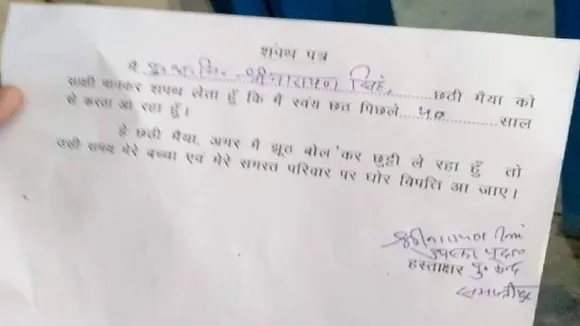 शपथ पत्र
मै पु०अ०नि० श्रीनारायण सिंह, छठी मैया को
साक्षी मानकर शपथ लेता हूँ कि मै स्वंय छठ पिछले 50 साल
से करता आ रहा हूँ।
हे छठी मैया, अगर मै झूठ बोल कर छुट्टी ले रहा हूँ तो
उसी समय मेरे बच्चा एवं मेरे समस्त परिवार पर घोर विपत्ति आ जाए।
श्रीनारायण सिंह
हस्ताक्षर पु० केन्द्र